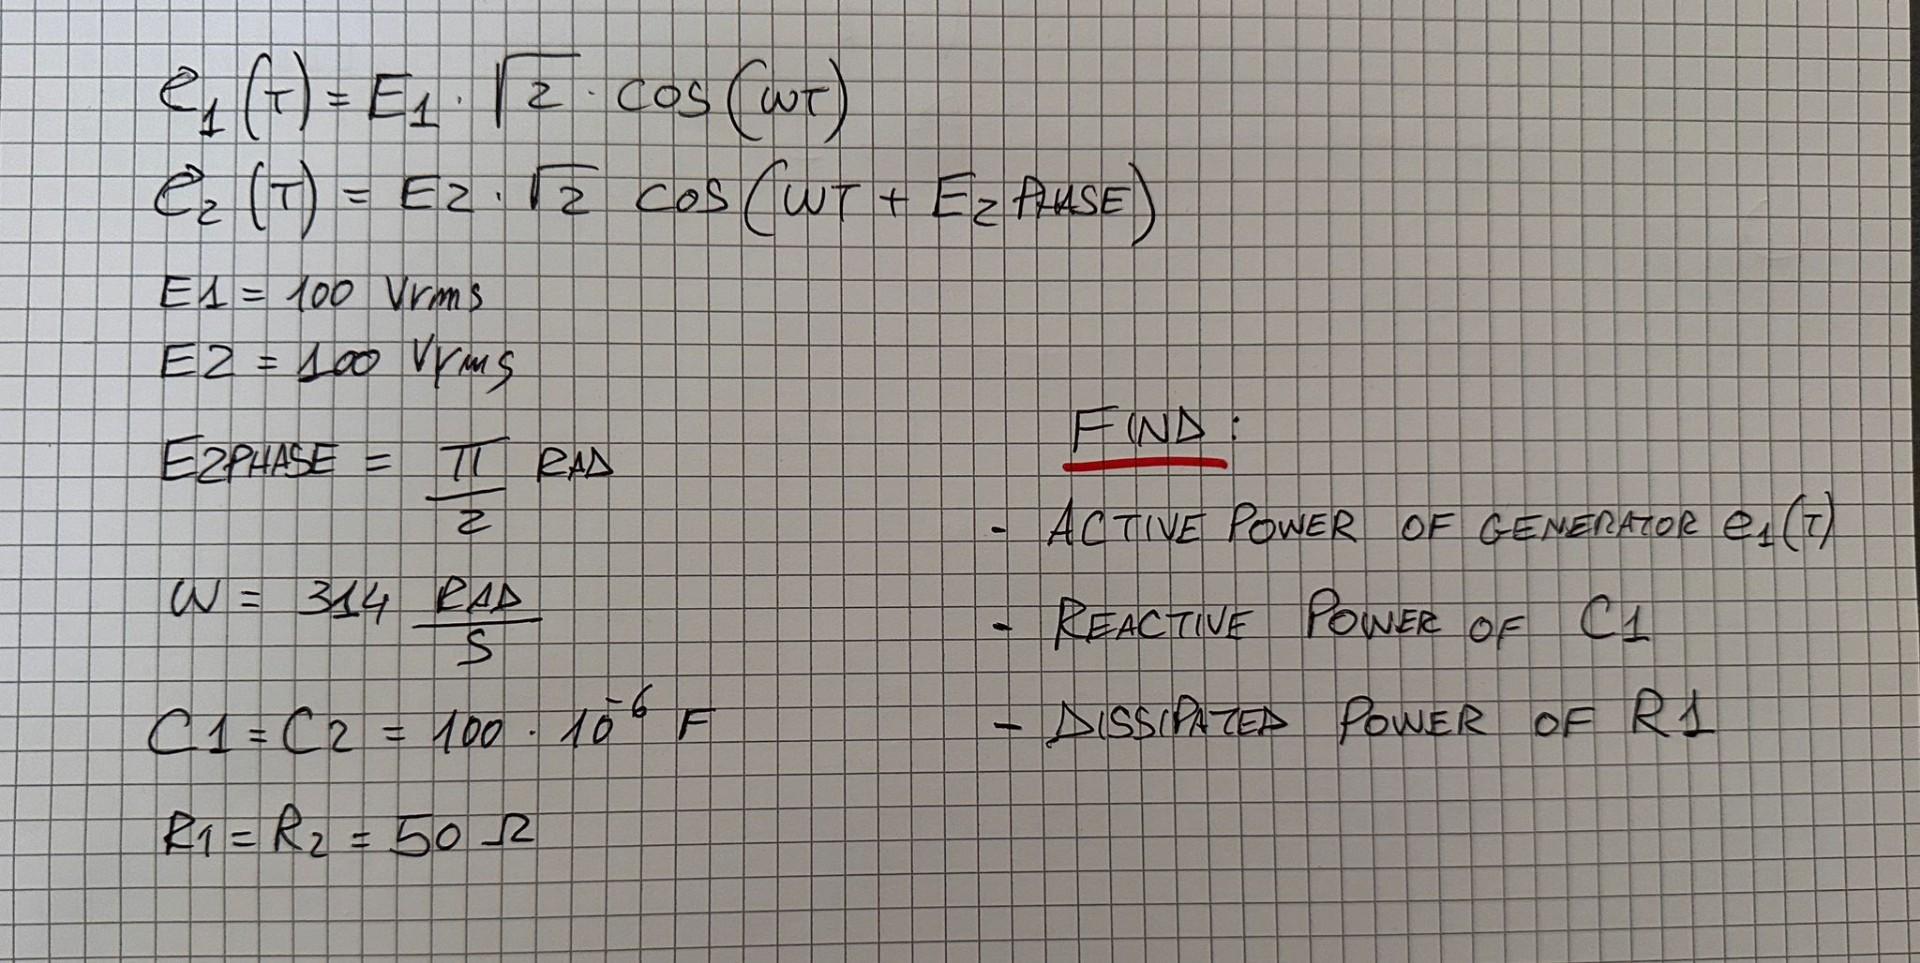 e₁(T) = E1 · √2 · COS(WT)
e₂(T) = E2 · √2 COS(WT + E2PHASE)
E1 = 100 Vrms
E2 = 100 Vrms
E2PHASE = π/2 RAD
W = 314 RAD/S
C1 = C2 = 100 · 10⁻⁶ F
R1 = R2 = 50 Ω
FIND:
- ACTIVE POWER OF GENERATOR e₁(T)
- REACTIVE POWER OF C1
- DISSIPATED POWER OF R1